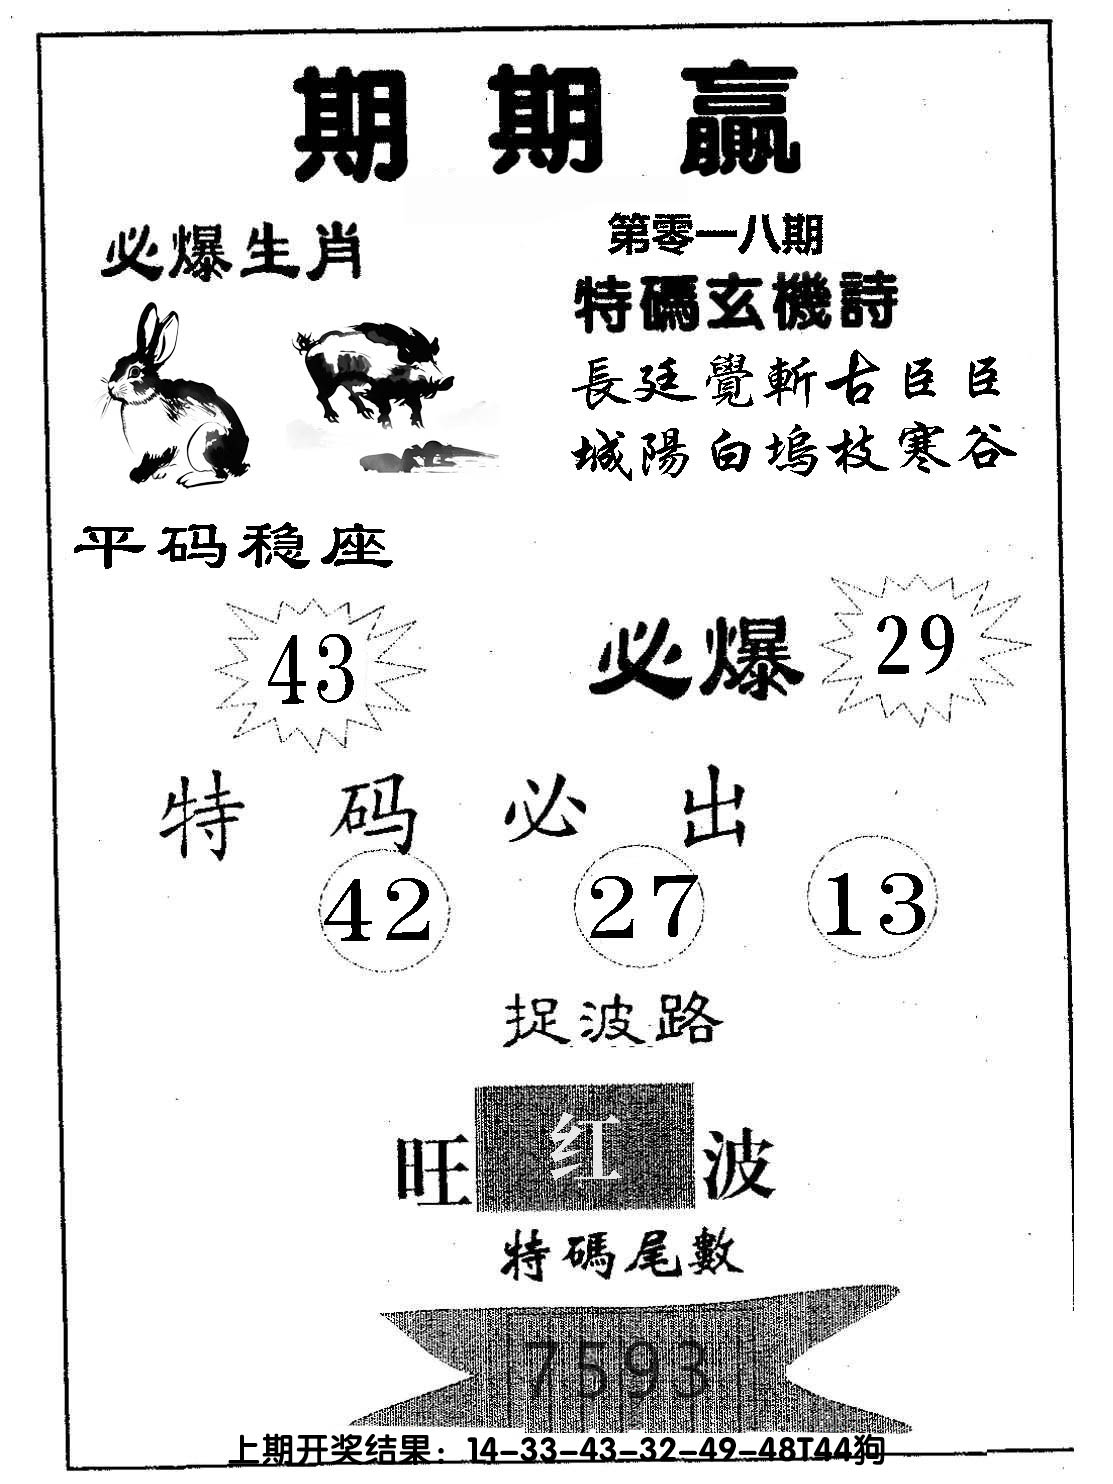 期期赢
必爆生肖
第零一八期
特碼玄機詩
長廷覺斬古臣臣
城陽白塢枝寒谷
平码稳座
43
必爆 29
特码必出
42 27 13
捉波路
旺 红 波
特碼尾數
7593
上期开奖结果：14-33-43-32-49-48T44狗